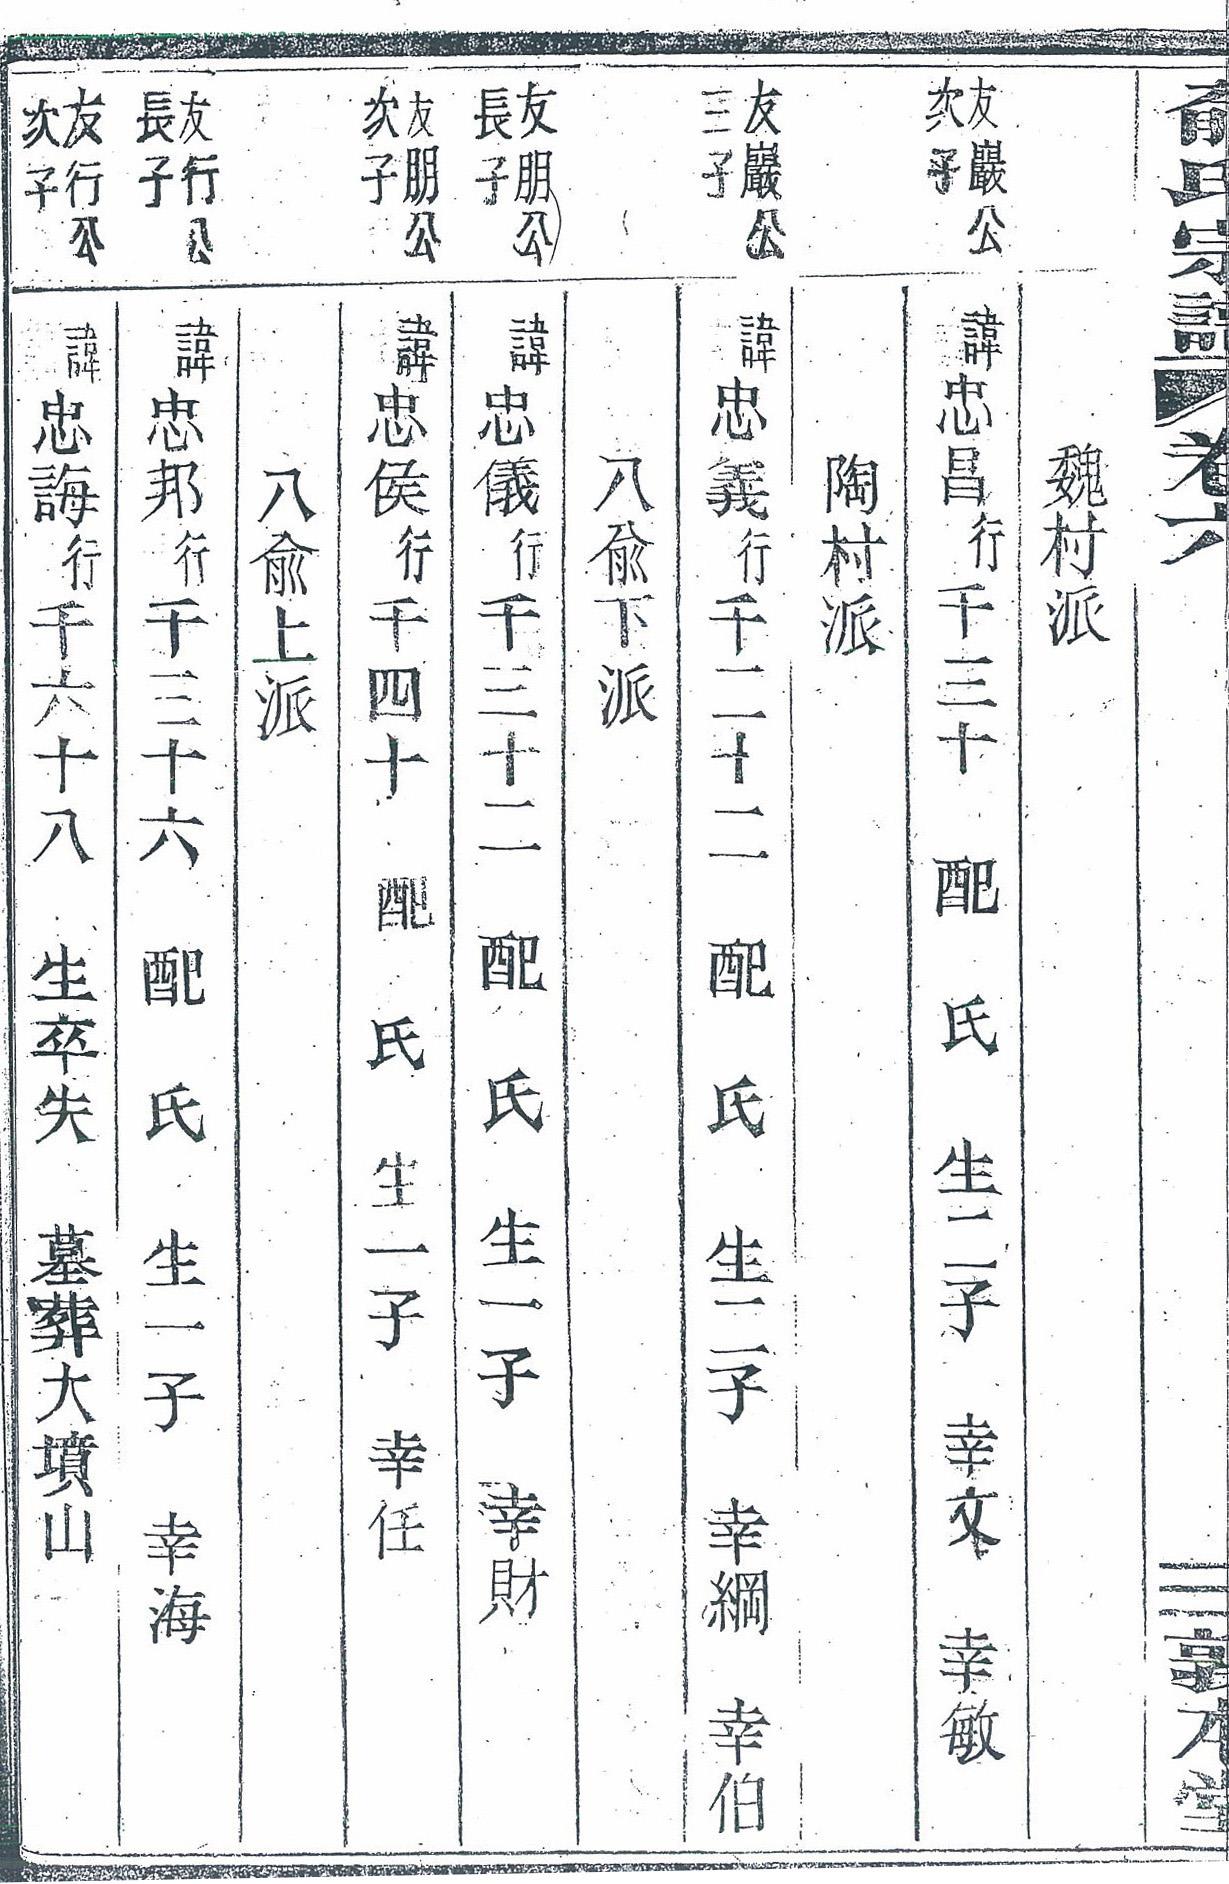 俞氏宗譜 卷六 敦本堂
魏村派
友巖公
次子
諱忠昌行千三十 配 氏 生二子 幸文 幸敏
陶村派
友巖公
三子
諱忠義行千二十二 配 氏 生二子 幸綱 幸伯
八俞下派
友朋公
長子
諱忠儀行千三十二 配 氏 生一子 幸財
友朋公
次子
諱忠侯行千四十 配 氏 生一子 幸任
八俞上派
友行公
長子
諱忠邦行千三十六 配 氏 生一子 幸海
友行公
次子
諱忠誨行千六十八 生卒失 墓葬大墳山